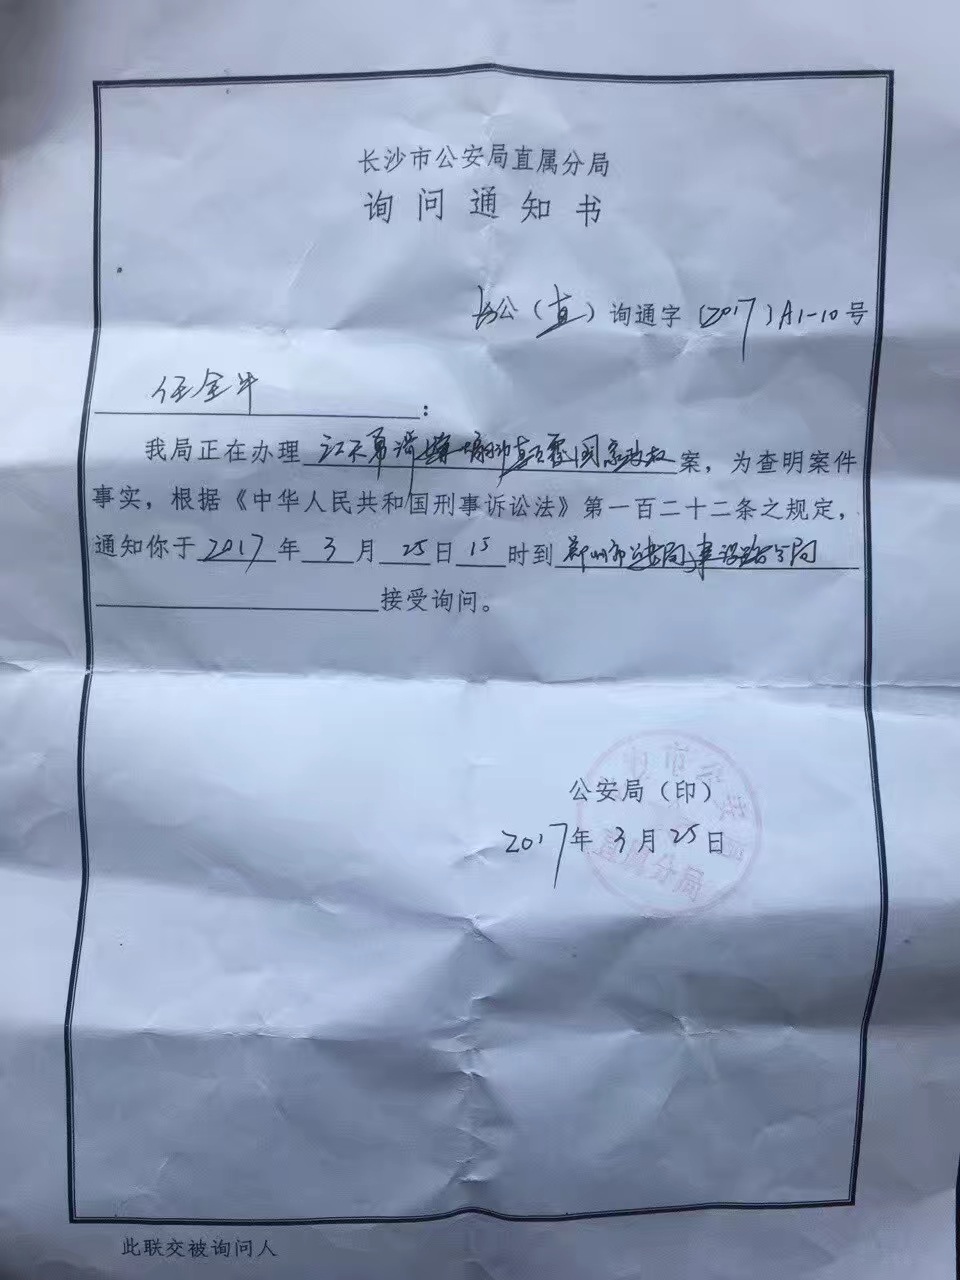 长沙市公安局直属分局
询问通知书
长公（直）询通字〔2017〕A1-10号
任全牛：
我局正在办理江天勇涉嫌煽动颠覆国家政权案，为查明案件
事实，根据《中华人民共和国刑事诉讼法》第一百二十二条之规定，
通知你于2017年3月25日15时到郑州市公安局建设路分局
接受询问。
公安局（印）
2017年3月25日
直属分局
此联交被询问人